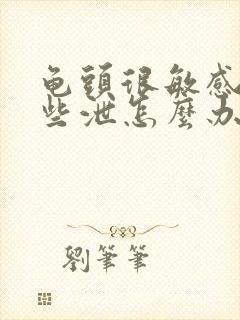 龟頭很敏感
些泄怎麼办
劉筆筆